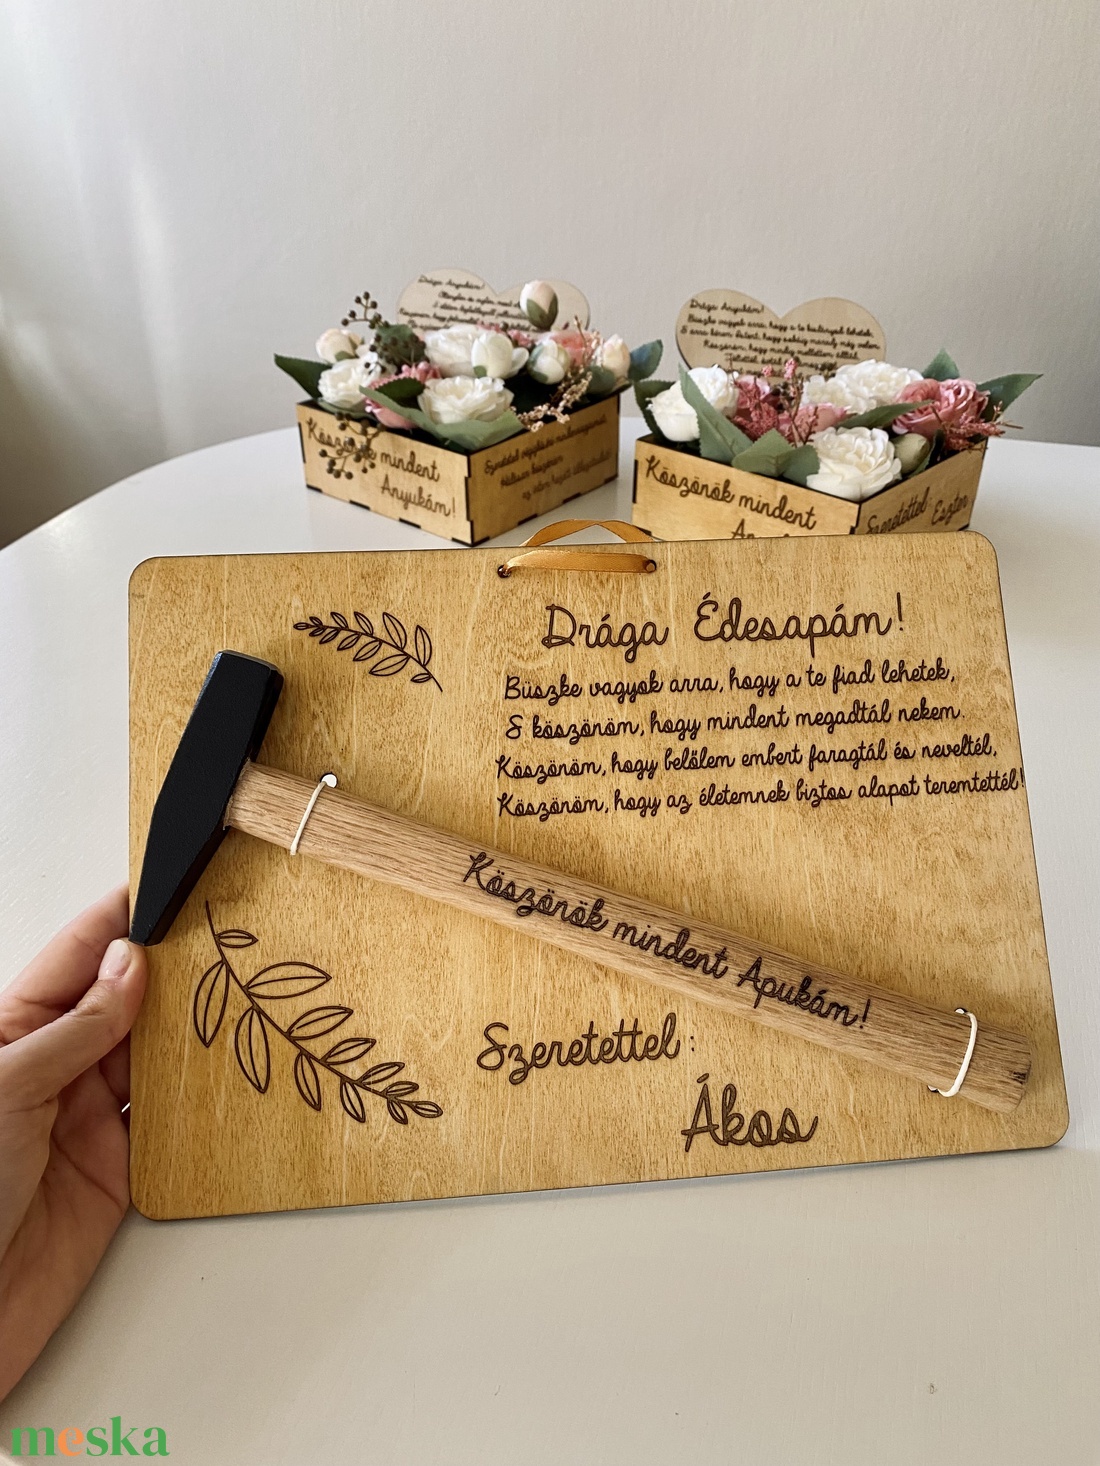 Drága Anyukám!
Drága Anyukám!
Büszke vagyok arra, hogy a te kislányod lehetek,
Köszönöm, hogy mindig mellettem álltál
Köszönök mindent
Anyukám!
Köszönök mindent
Szeretettel:
Eszter
Drága Édesapám!
Büszke vagyok arra, hogy a te fiad lehetek,
S köszönöm, hogy mindent megadtál nekem.
Köszönöm, hogy belőlem embert faragtál és neveltél,
Köszönöm, hogy az életemnek biztos alapot teremtettél!
Köszönök mindent Apukám!
Szeretettel:
Ákos
meska